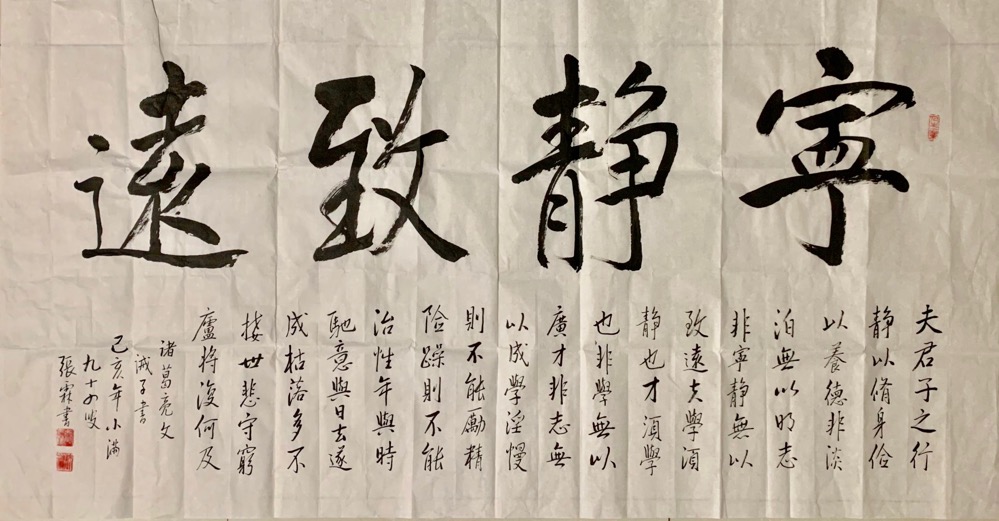 寧靜致遠
夫君子之行
靜以脩身儉
以養德非淡
泊無以明志
非寧靜無以
致遠夫學須
靜也才須學
也非學無以
廣才非志無
以成學淫慢
則不能勵精
險躁則不能
治性年與時
馳意與日去遂
成枯落多不
接世悲守窮
廬將復何及
諸葛亮文
誡子書
己亥年小滿
九十四叟
張霖書